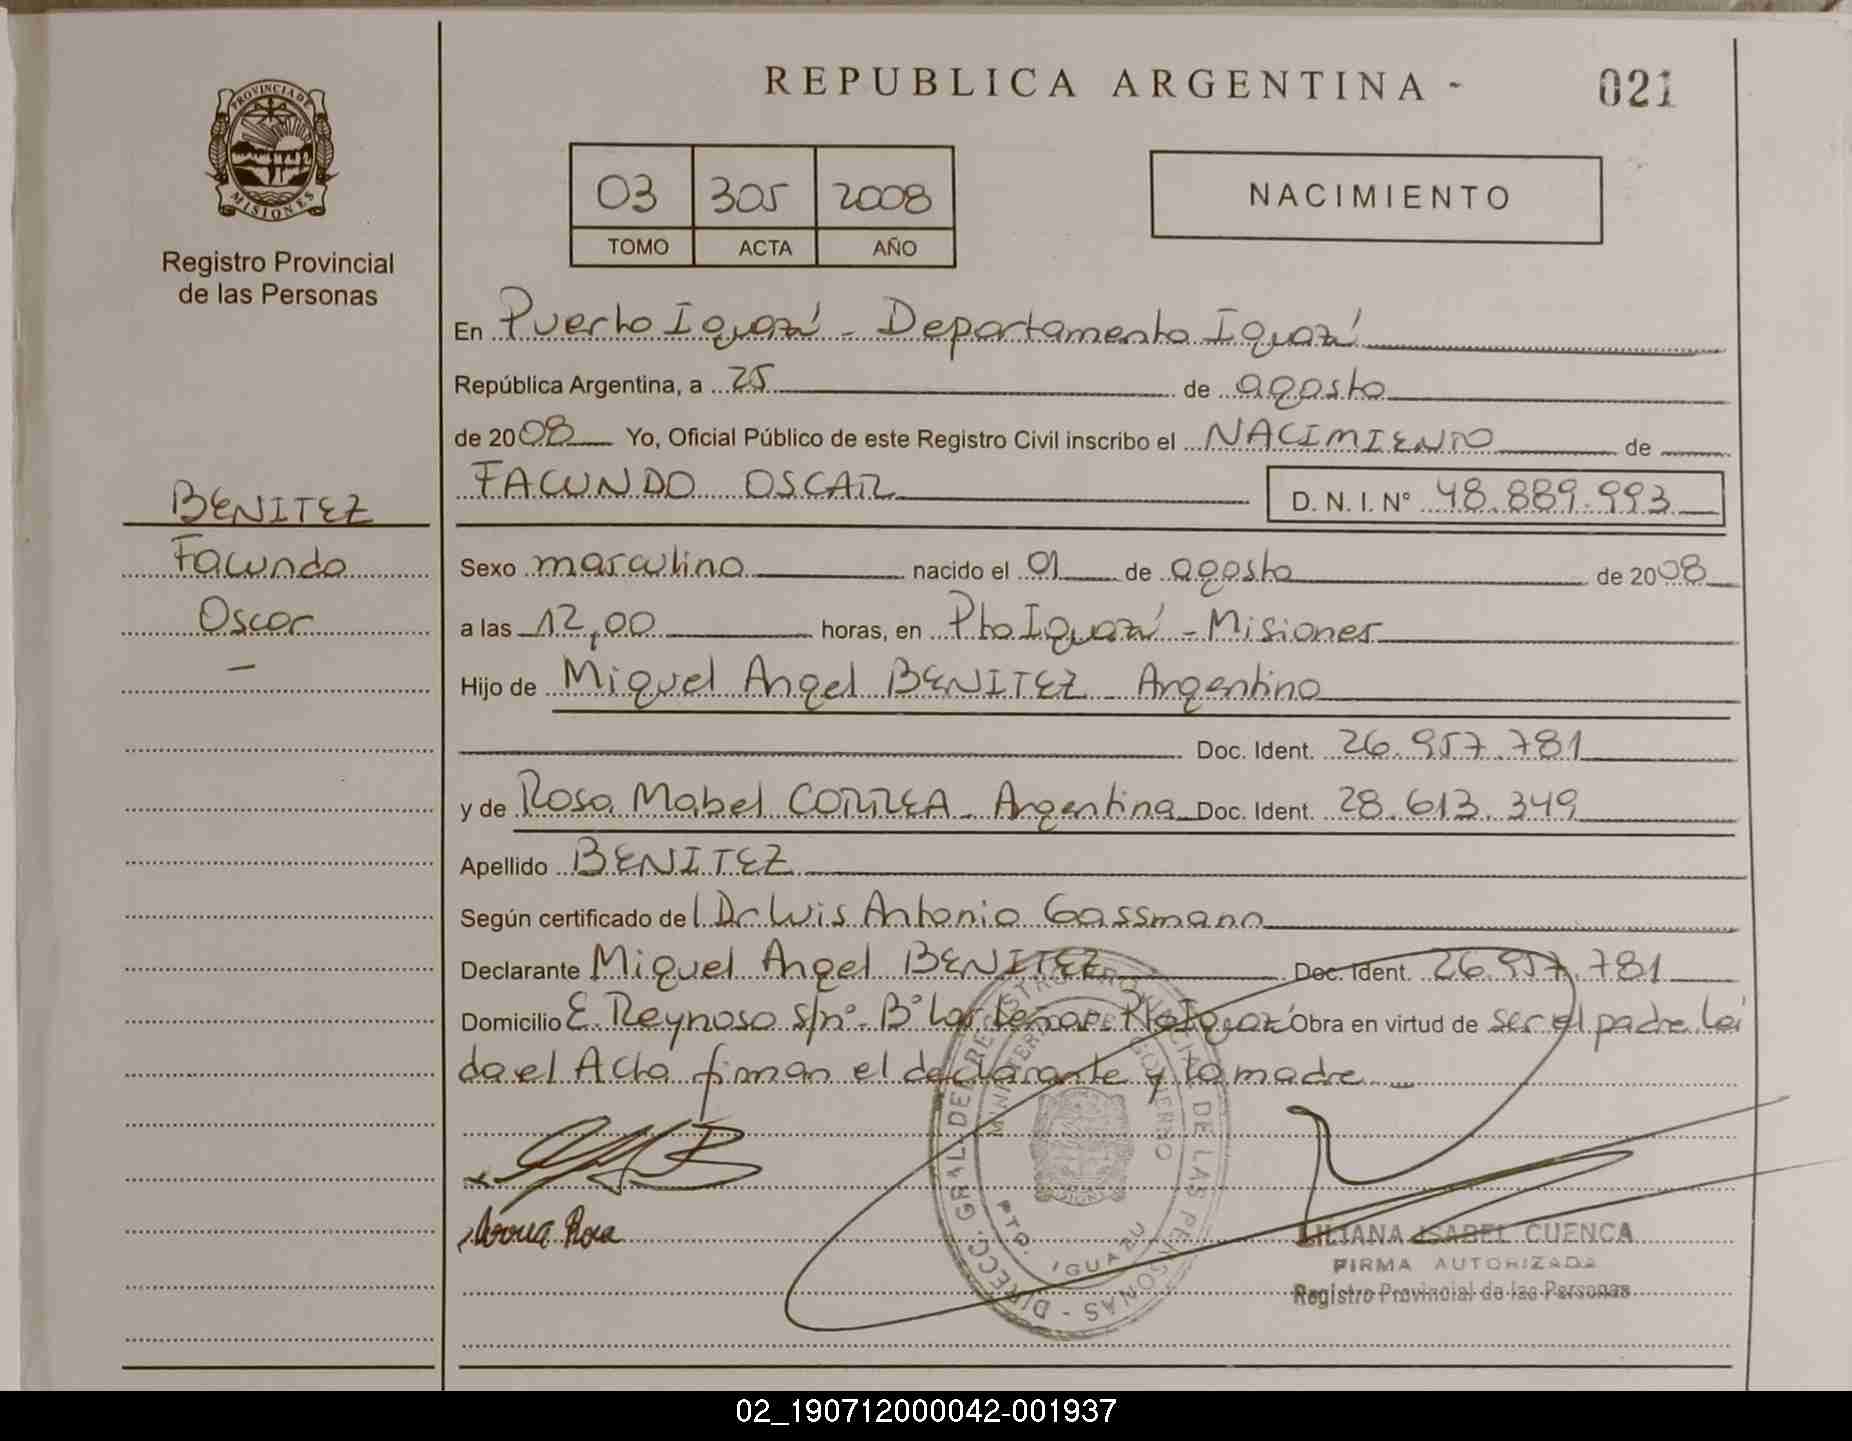 PROVINCIA DE
MISIONES
Registro Provincial
de las Personas
BENITEZ
Facundo
Oscar
—
REPUBLICA ARGENTINA - 021
03 305 2008
TOMO ACTA AÑO
NACIMIENTO
En Puerto Iguazú - Departamento Iguazú
República Argentina, a 25 de agosto
de 2008 Yo, Oficial Público de este Registro Civil inscribo el NACIMIENTO de
FACUNDO OSCAR D. N. I. Nº 48.889.993
Sexo masculino nacido el 01 de agosto de 2008
a las 12,00 horas, en Pto Iguazú - Misiones
Hijo de Miguel Angel BENITEZ - Argentino
Doc. Ident. 26.957.781
y de Rosa Mabel CORREA - Argentina Doc. Ident. 28.613.349
Apellido BENITEZ
Según certificado del Dr Luis Antonio Gassmann
Declarante Miguel Angel BENITEZ Doc. Ident. 26.957.781
Domicilio E. Reynoso s/nº - Bº Las Leñas Pto Iguazú Obra en virtud de ser el padre Leí
da el Acta firman el declarante y la madre
Correa Rosa
DIRECC. GRAL DE REGISTRO PROVINCIAL DE LAS PERSONAS -
MINISTERIO DE GOBIERNO
PTO. IGUAZU
LILIANA ISABEL CUENCA
FIRMA AUTORIZADA
Registro Provincial de las Personas
02_190712000042-001937